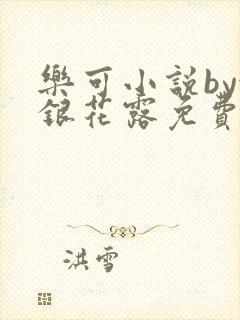 樂可小說by
銀花露免費
洪雪